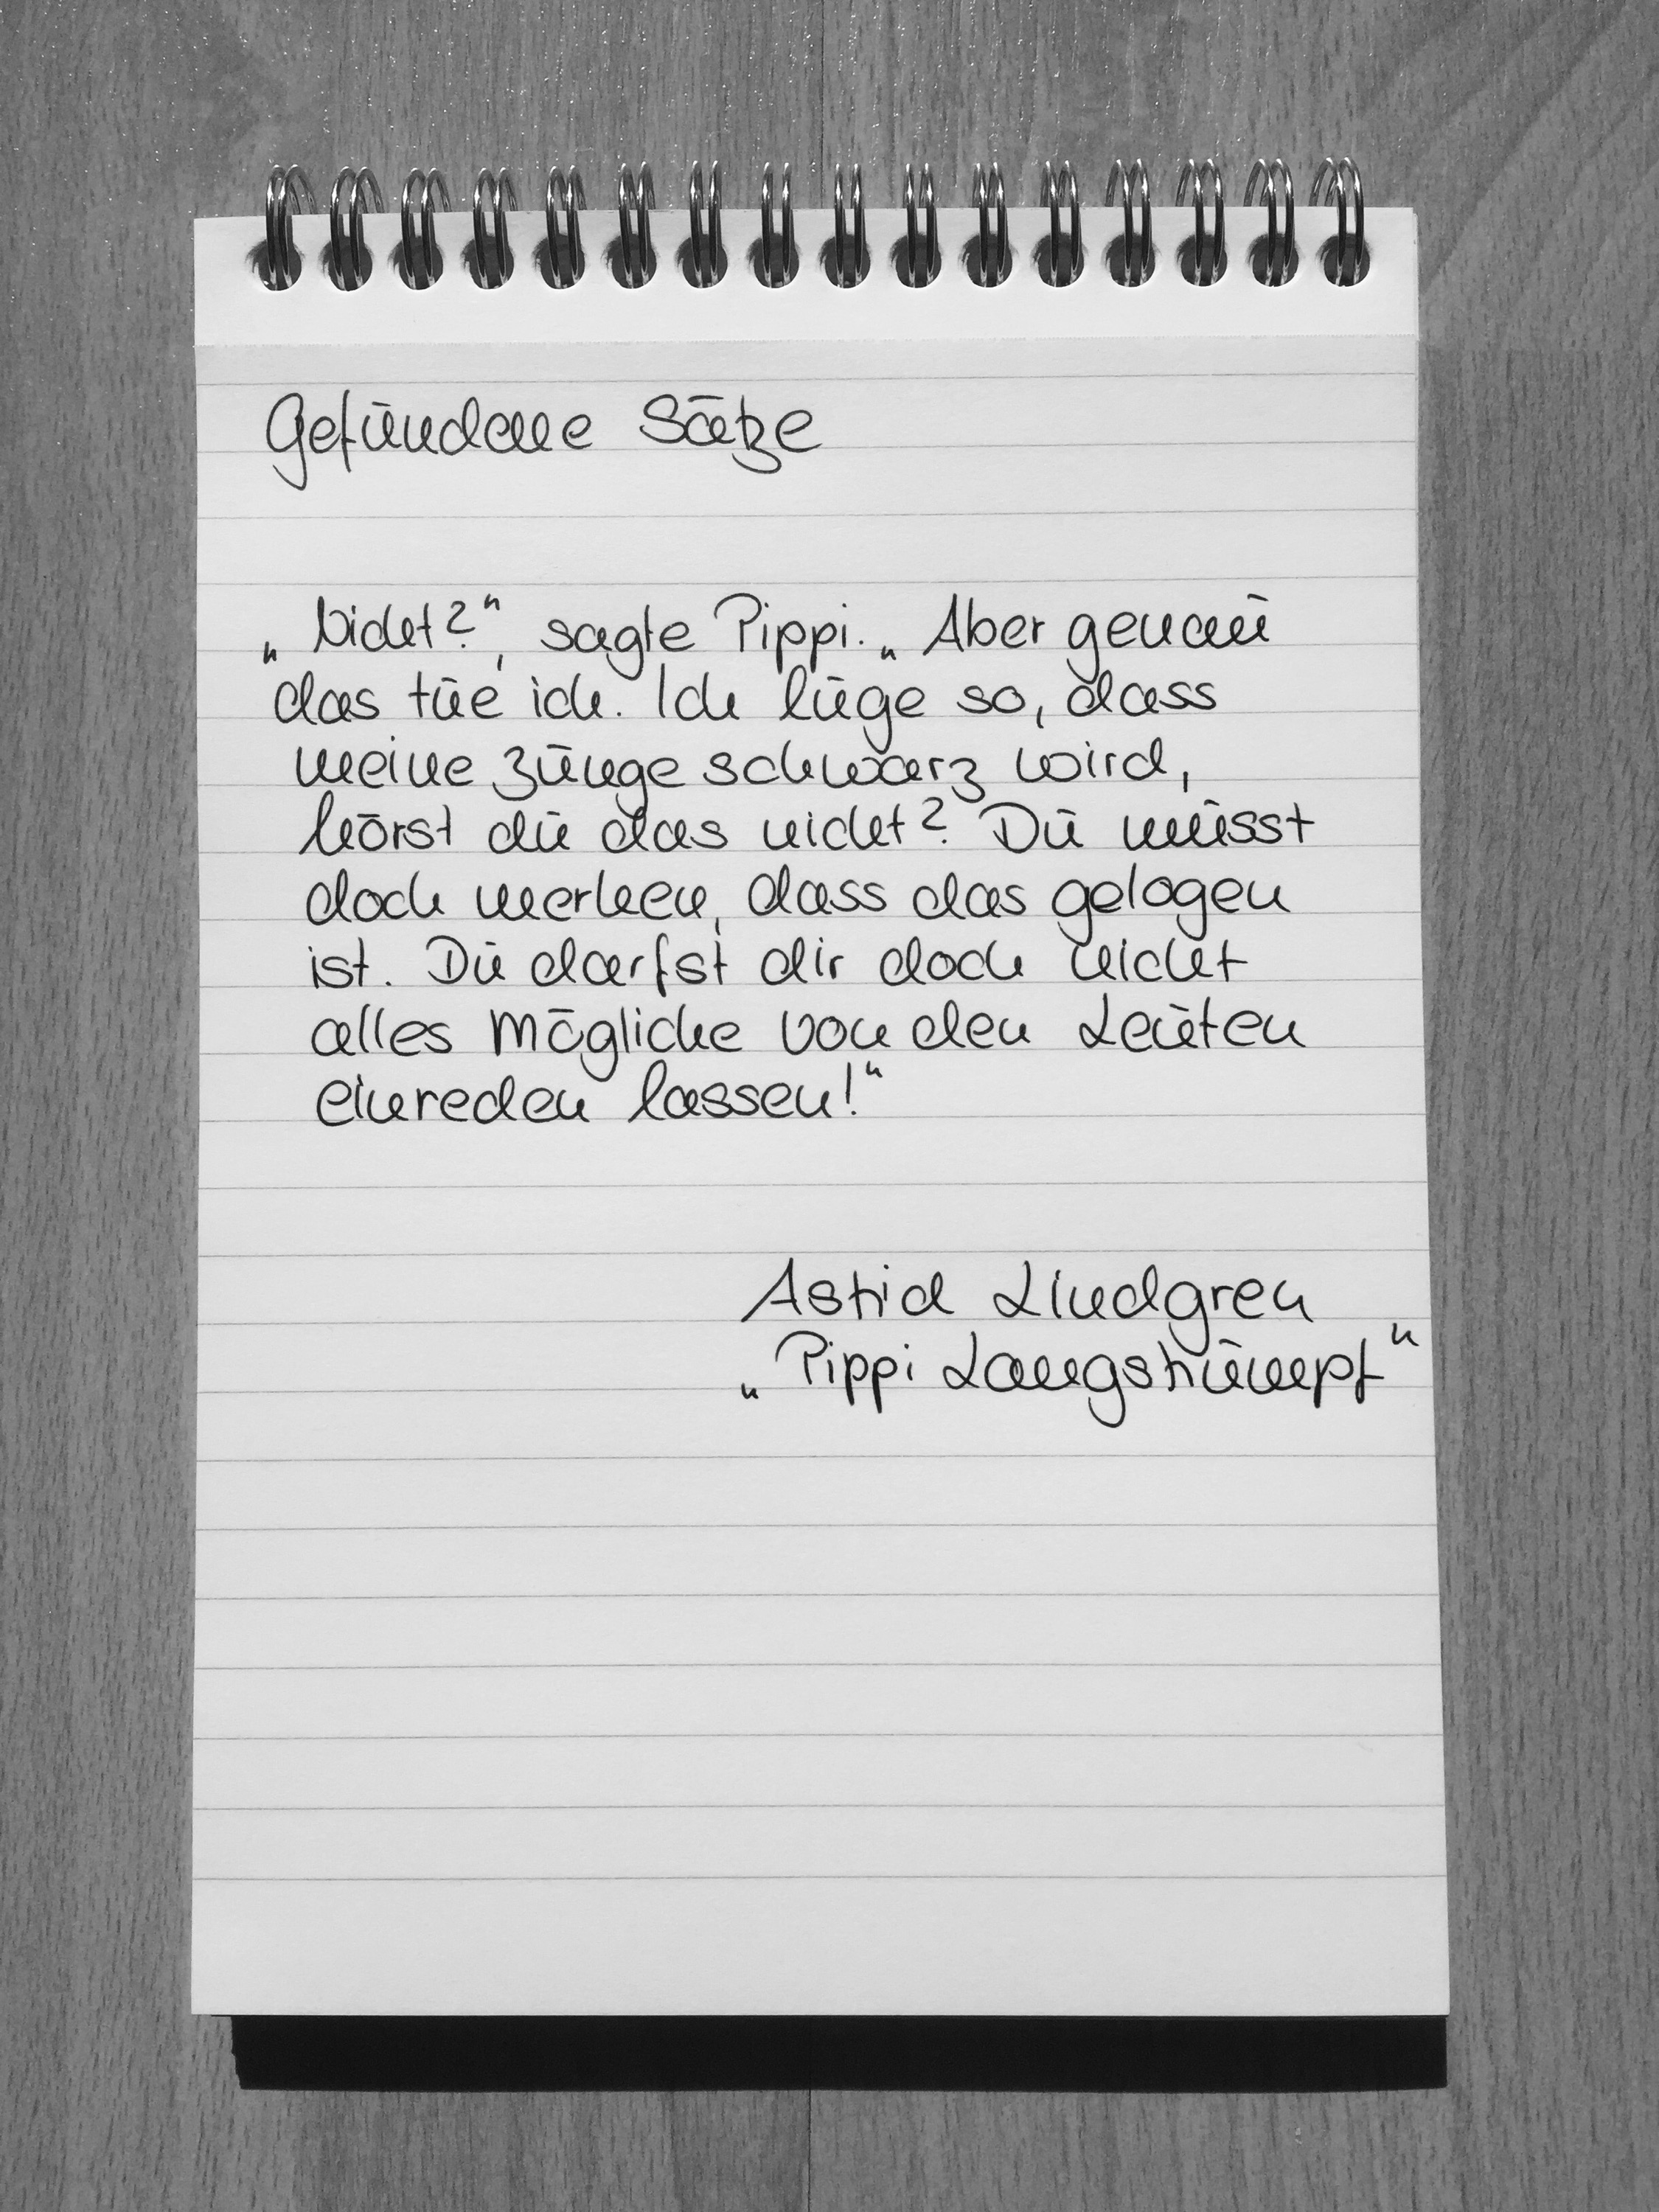 Gefundene Sätze
„Nicht?“, sagte Pippi. „Aber genau
das tue ich. Ich lüge so, dass
meine Zunge schwarz wird,
hörst du das nicht? Du musst
doch merken, dass das gelogen
ist. Du darfst dir doch nicht
alles Mögliche von den Leuten
einreden lassen!“
Astrid Lindgren
„Pippi Langstrumpf“